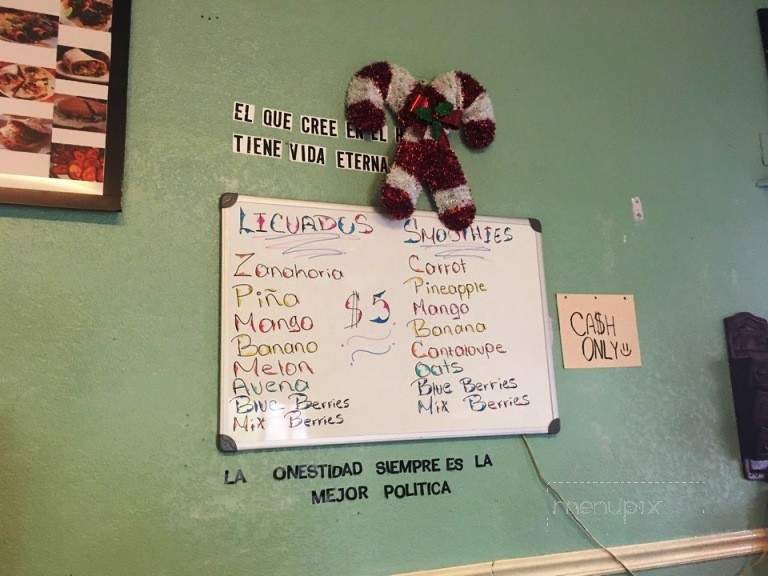 EL QUE CREE EN EL
TIENE VIDA ETERNA
LICUADOS
Zanahoria
Piña
Mango
Banano
Melon
Avena
Blue Berries
Mix Berries
$5
SMOOTHIES
Carrot
Pineapple
Mango
Banana
Cantaloupe
Oats
Blue Berries
Mix Berries
CA$H
ONLY
LA ONESTIDAD SIEMPRE ES LA
MEJOR POLITICA
menupix